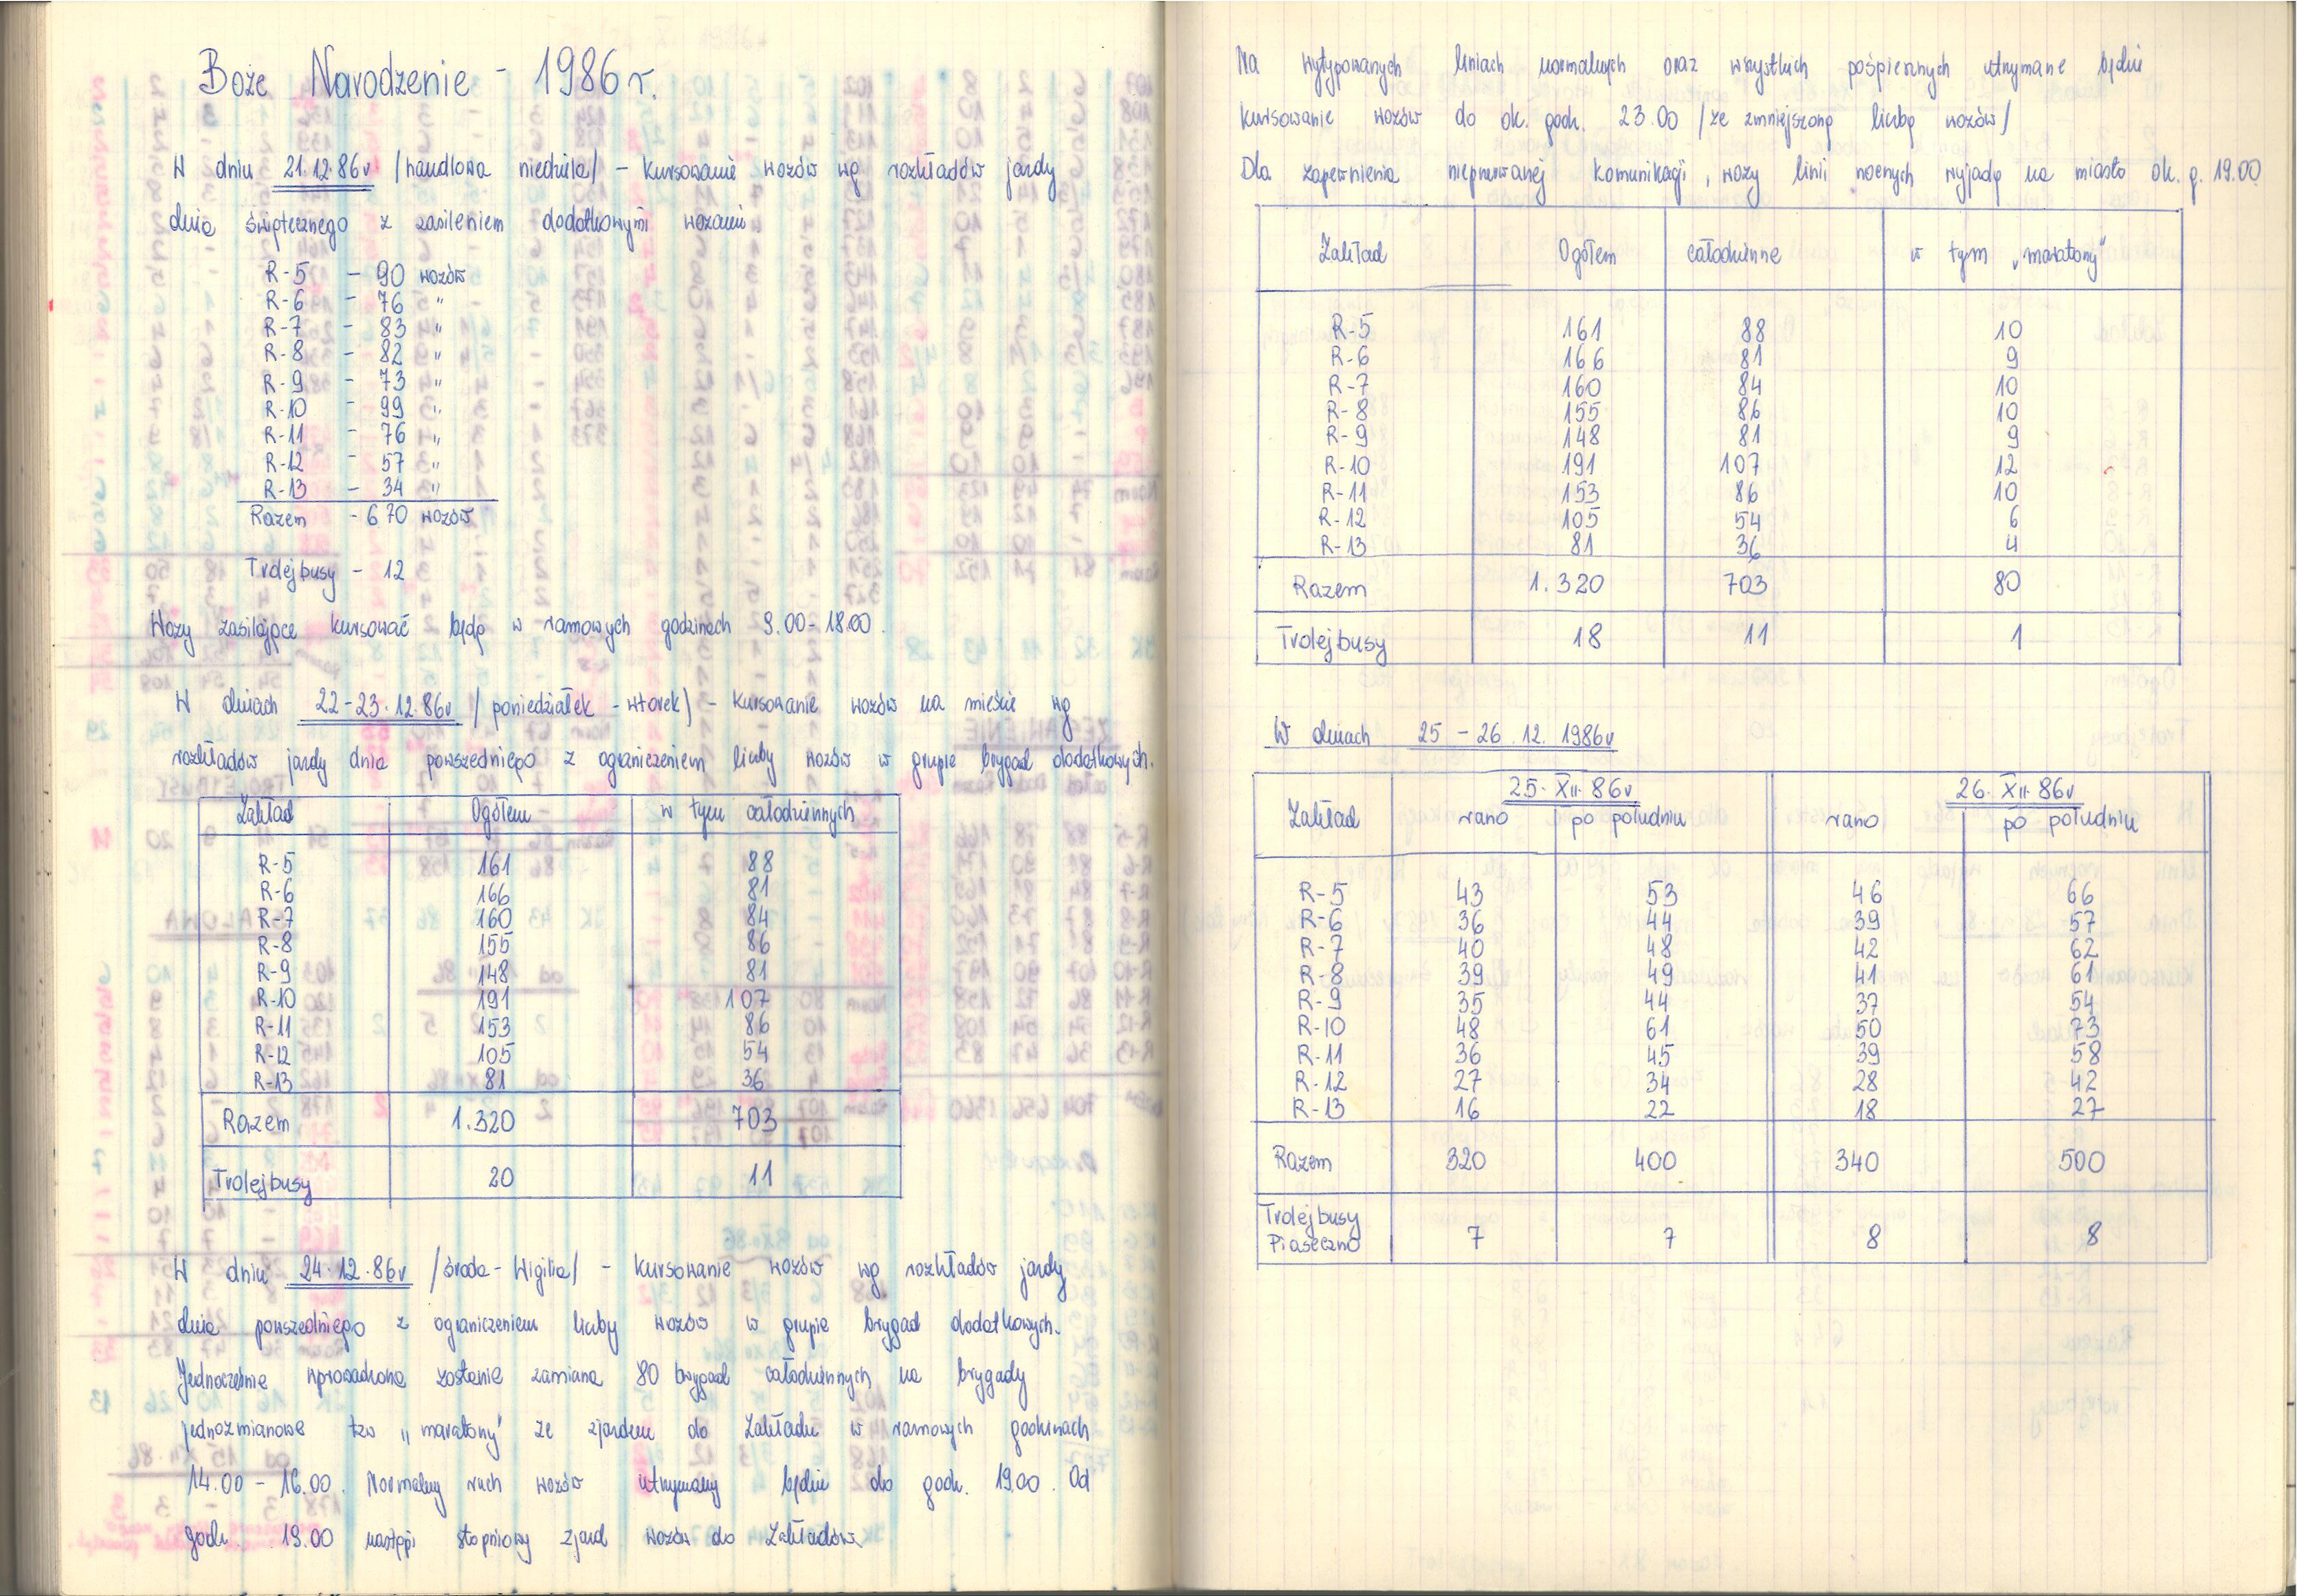 Boże Narodzenie - 1986 r.
W dniu 21.12.86r /handlowa niedziela/ - kursowanie wozów wg rozkładów jazdy
dnia świątecznego z zasileniem dodatkowymi wozami
R-5 - 90 wozów
R-6 - 76 "
R-7 - 83 "
R-8 - 82 "
R-9 - 73 "
R-10 - 99 "
R-11 - 76 "
R-12 - 57 "
R-13 - 34 "
Razem - 670 wozów
Trolejbusy - 12
Wozy zasilające kursować będą w ramowych godzinach 9.00-18.00.
W dniach 22-23.12.86r /poniedziałek - wtorek/ - kursowanie wozów na mieście wg
rozkładów jazdy dnia powszedniego z ograniczeniem liczby wozów w grupie brygad dodatkowych.
Zakład Ogółem w tym całodziennych
R-5 161 88
R-6 166 81
R-7 160 84
R-8 155 86
R-9 148 81
R-10 191 107
R-11 153 86
R-12 105 54
R-13 81 36
Razem 1.320 703
Trolejbusy 20 11
W dniu 24.12.86r /środa - Wigilia/ - kursowanie wozów wg rozkładów jazdy
dnia powszedniego z ograniczeniem liczby wozów w grupie brygad dodatkowych.
Jednocześnie wprowadzona zostanie zamiana 80 brygad całodziennych na brygady
jednozmianowe tzw „maratony" ze zjazdem do Zakładu w ramowych godzinach
14.00 - 16.00. Normalny ruch wozów utrzymany będzie do godz. 19.00. Od
godz. 19.00 nastąpi stopniowy zjazd wozów do Zakładów
Na wytypowanych liniach normalnych oraz wszystkich pośpiesznych utrzymane będzie
kursowanie wozów do ok. godz. 23.00 /ze zmniejszoną liczbą wozów/
Dla zapewnienia nieprzerwanej komunikacji, wozy linii nocnych wyjadą na miasto ok. g. 19.00
Zakład Ogółem całodzienne w tym „maratony"
R-5 161 88 10
R-6 166 81 9
R-7 160 84 10
R-8 155 86 10
R-9 148 81 9
R-10 191 107 12
R-11 153 86 10
R-12 105 54 6
R-13 81 36 4
Razem 1.320 703 80
Trolejbusy 18 11 1
W dniach 25 - 26.12.1986r
25.XII.86r 26.XII.86r
Zakład rano po południu rano po południu
R-5 43 53 46 66
R-6 36 44 39 57
R-7 40 48 42 62
R-8 39 49 41 61
R-9 35 44 37 54
R-10 48 61 50 73
R-11 36 45 39 58
R-12 27 34 28 42
R-13 16 22 18 27
Razem 320 400 340 500
Trolejbusy
Piaseczno 7 7 8 8